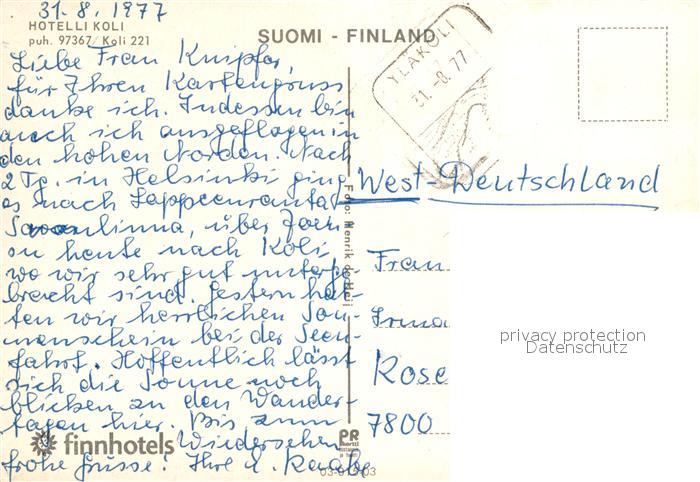 31.8.1977
HOTELLI KOLI
puh. 97367/Koli 221
SUOMI - FINLAND
YLÄKOLI
31.-8.77
Liebe Frau Knipfer,
für Ihren Kartengruss
danke ich. Indessen bin
auch ich ausgeflogen in
den hohen Norden. Nach
2 Tg. in Helsinki ging
es nach Lappeenranta
Savonlinna, über Joen
su heute nach Koli,
wo wir sehr gut unterge
bracht sind. Gestern hat-
ten wir herrlichen Son-
nenschein bei der Seen-
fahrt. Hoffentlich lässt
sich die Sonne noch
blicken zu den Wander-
tagen hier. Bis zum
Wiedersehen
frohe Grüsse! Ihre L. Raabe
West-Deutschland
Frau
Irma
Rose
7800
Foto: Henrik de Heij
privacy protection
Datenschutz
finnhotels
PR
03-019-03